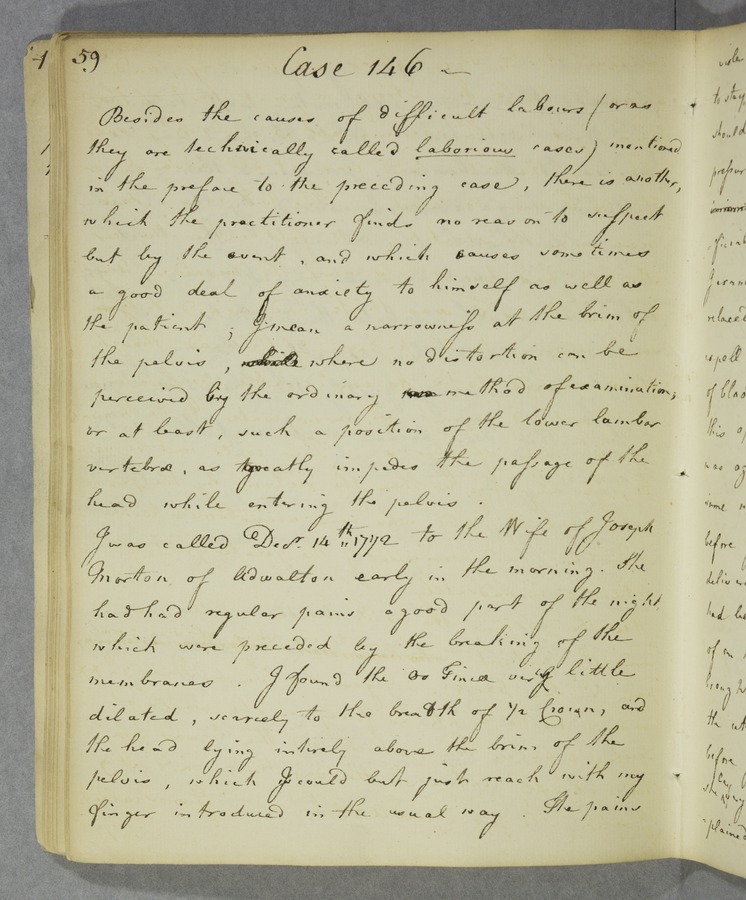 59
Case 146
Besides the causes of difficult labours (or as
they are technically called laborious cases) mentioned
in the preface to the preceding case, there is another,
which the practitioner finds no reason to suspect
but by the event, and which causes sometimes
a good deal of anxiety to himself as well as
the patient; I mean a narrowness at the brim of
the pelvis, where no distortion can be
perceived by the ordinary method of examination;
or at least, such a position of the lower lumbar
vertebræ, as greatly impedes the passage of the
head while entering the pelvis.
I was called Decr. 14th 1772 to the Wife of Joseph
Morton of Adwalton early in the morning. She
had had regular pains a good part of the night
which were preceded by the breaking of the
membranes. I found the Os Tincæ very little
dilated, scarcely to the breadth of 1/2 Crown, and
the head lying intirely above the brim of the
pelvis, which I could but just reach with my
finger introduced in the usual way. The pains